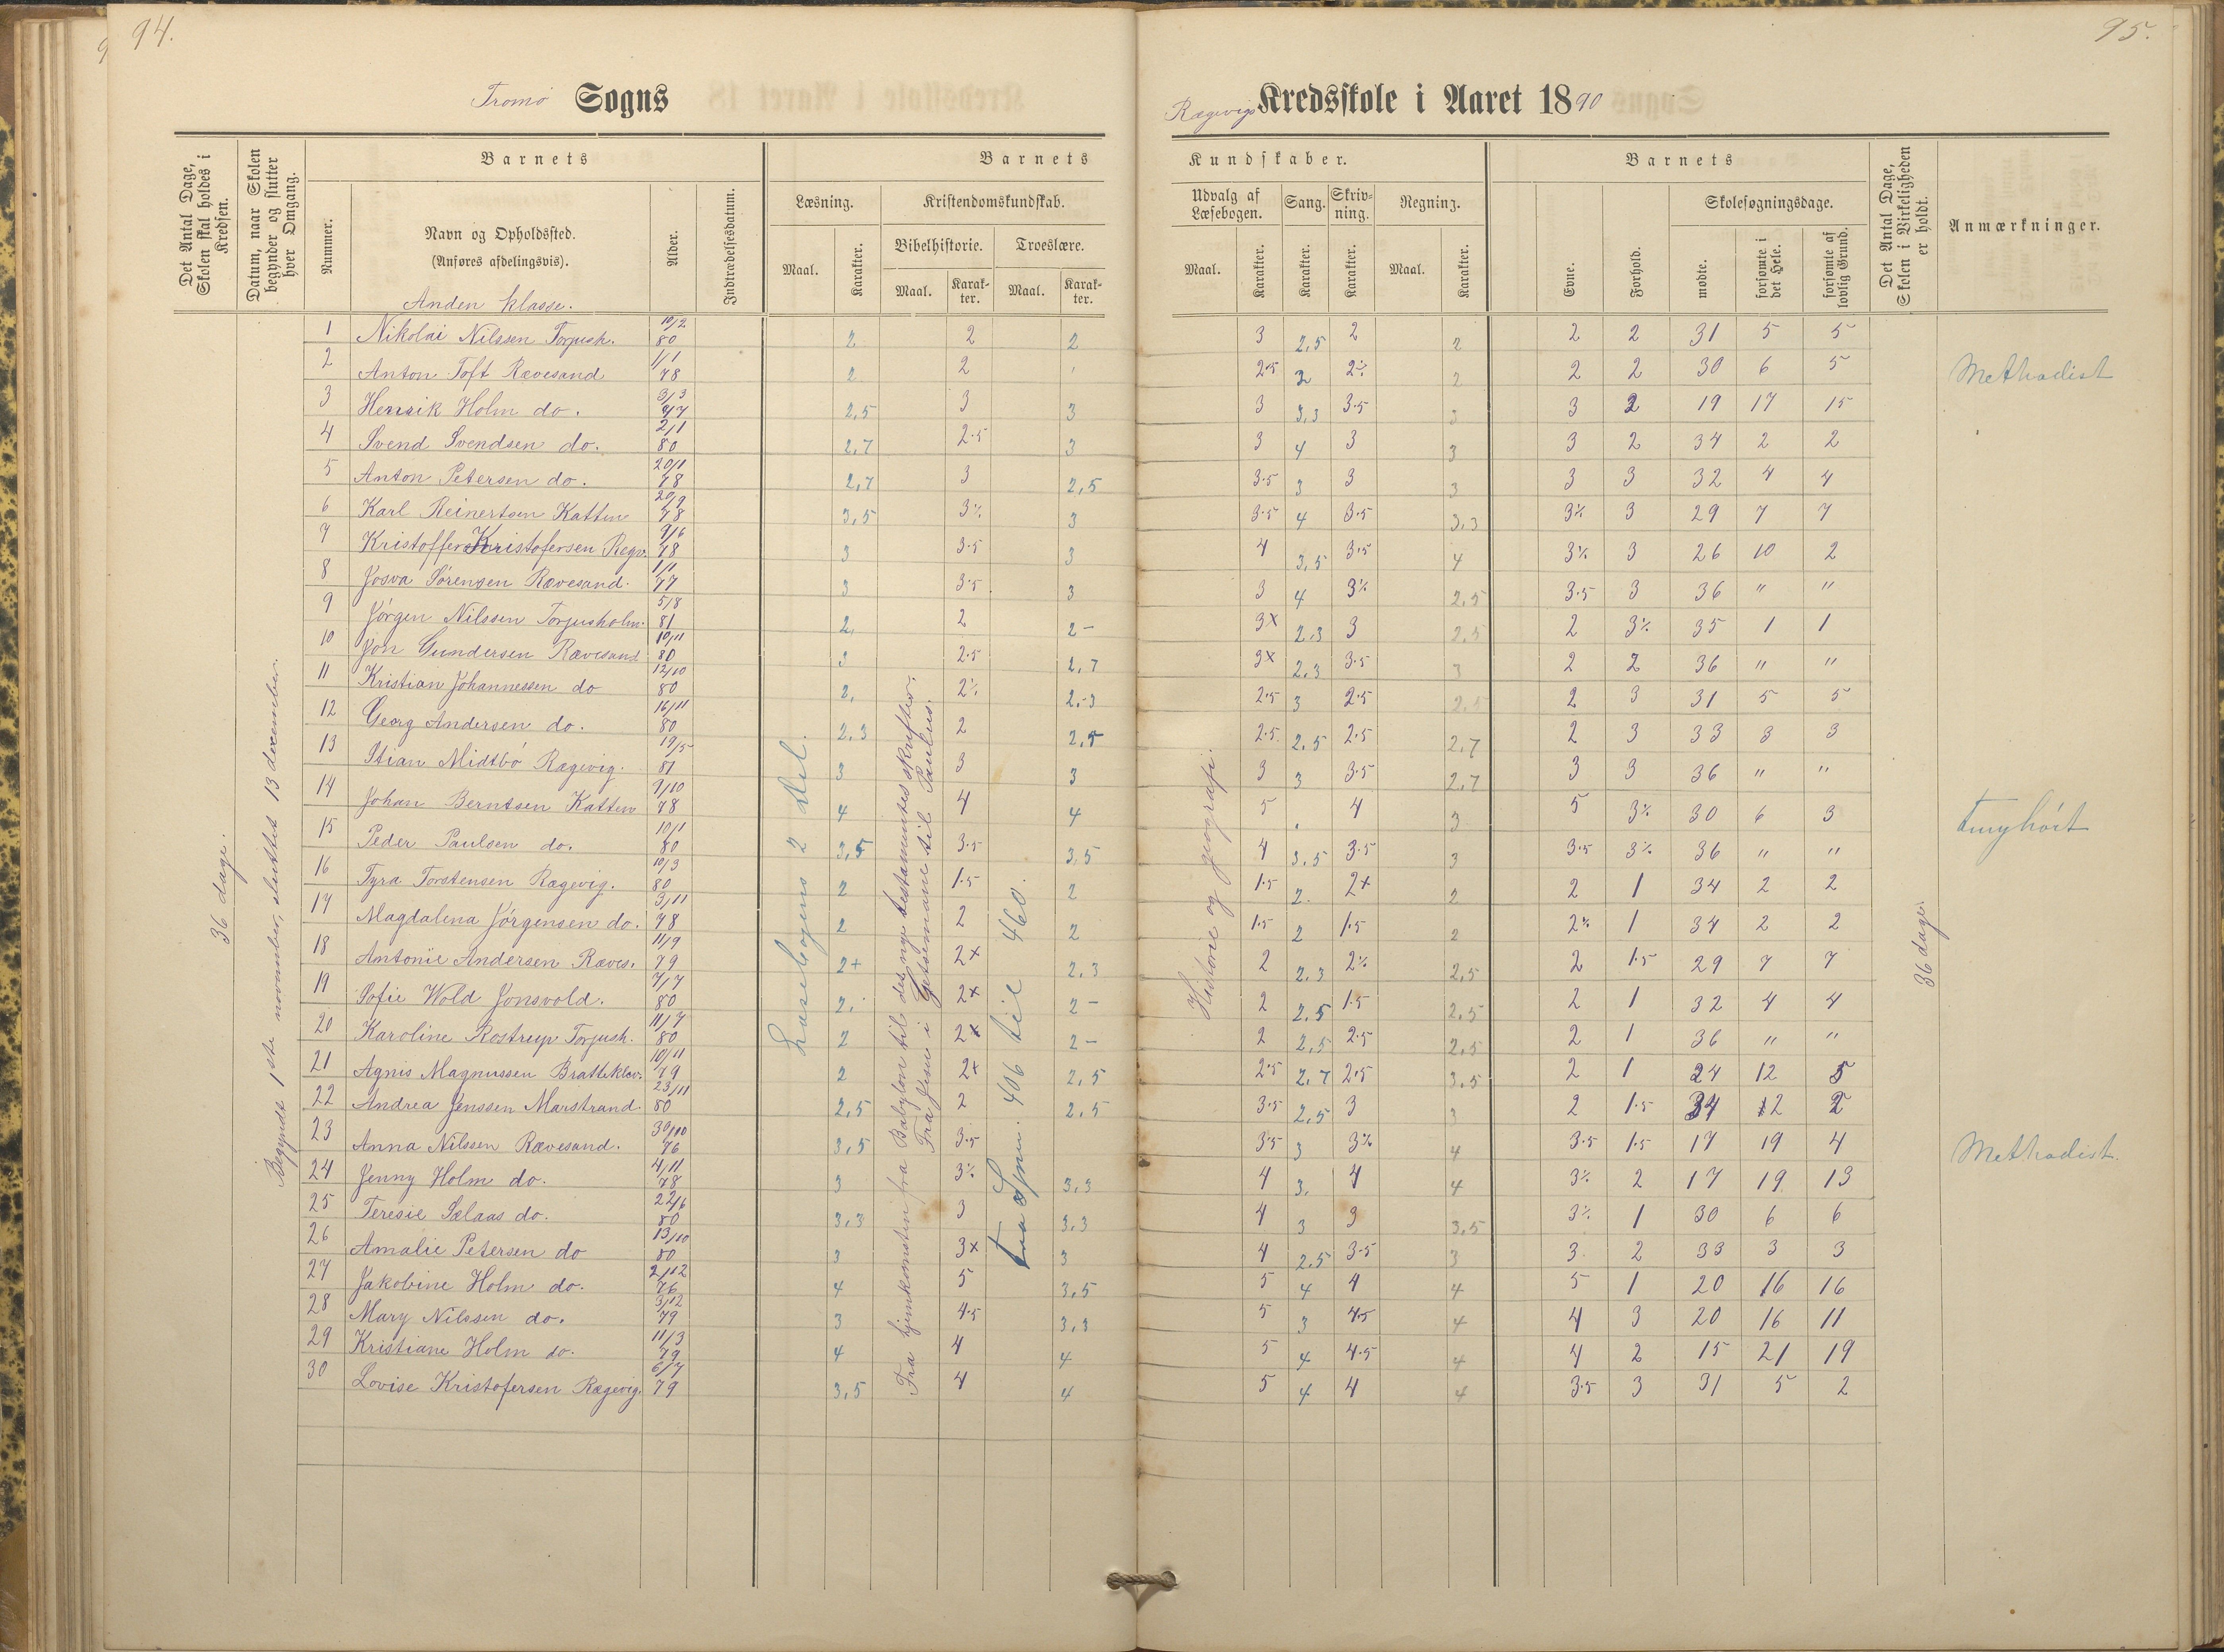 94.
95.
Tromø Sogns
Rægevigs Kredsskole i Aaret 1890
Det Antal Dage, Skolen skal holdes i Kredsen.
Datum, naar Skolen begynder og slutter hver Omgang.
Barnets
Nummer.
Navn og Opholdssted.
(Anføres afdelingsvis).
Anden klasse.
Alder.
Indtrædelsesdatum.
Barnets
Læsning.
Kristendomskundskab.
Bibelhistorie.
Troeslære.
Maal.
Karakter.
Maal.
Karakter.
Maal.
Karakter.
Kundskaber.
Udvalg af Læsebogen.
Sang.
Skrivning.
Regning.
Maal.
Karakter.
Karakter.
Karakter.
Maal.
Karakter.
Barnets
Evne.
Forhold.
Skolesøgningsdage.
mødte.
forsømte i det Hele.
forsømte af lovlig Grund.
Det Antal Dage, Skolen i Virkeligheden er holdt.
Anmærkninger.
36 dage.
Begyndt 1ste november, sluttet 13 december.
Læsebogens 2 del.
Fra hjemkomsten fra Babylon til det nye testamentes skrifter.
Fra Jesu i Getsemane til Paulus.
fra Spm. 406 til 460.
Historie og geografi.
36 dage.
1 Nikolai Nilssen Torjush. 10/2 80 2 2 2 3 2,5 2 2 2 2 31 5 5
2 Anton Toft Rævesand 1/1 78 2 2 2·5 2 2% 2 2 2 30 6 5 Methodist
3 Henrik Holm do. 3/3 77 2,5 3 3 3 3,3 3·5 3 3 2 19 17 15
4 Svend Svendsen do. 2/1 80 2,7 2·5 3 3 4 3 3 3 2 34 2 2
5 Anton Petersen do. 20/1 78 2,7 3 2,5 3·5 3 3 3 3 3 32 4 4
6 Karl Reinertsen Katten 20/9 78 3,5 3% 3 3·5 4 3·5 3,3 3% 3 29 7 7
7 Kristoffer Kristofersen Rægv. 9/6 78 3 3·5 3 4 3,5 3·5 4 3% 3 26 10 2
8 Josva Sørensen Rævesand. 1/1 77 3 3·5 3 3 4 3% 2,5 3·5 3 36 " "
9 Jørgen Nilssen Torjusholm. 5/8 81 2, 2 2- 3x 2,3 3 2,5 2 3% 35 1 1
10 Jon Gundersen Rævesand 10/11 80 3 2·5 2,7 3x 2,3 3·5 3 2 2 36 " "
11 Kristian Johannessen do 12/10 80 2, 2% 2,3 2·5 3 2·5 2,5 2 3 31 5 5
12 Georg Andersen do. 16/11 80 2,3 2 2,5 2·5 2,5 2·5 2,7 2 3 33 3 3
13 Stian Midtbø Rægevig. 19/5 81 3 3 3 3 3 3·5 2,7 3 3 36 " "
14 Johan Berntsen Katten 9/10 78 4 4 4 5 . 4 3 5 3% 30 6 3 tunghørt
15 Peder Paulsen do. 10/1 80 3,5 3·5 3,5 4 3,5 3·5 3 3·5 3% 36 " "
16 Tyra Torstensen Rægevig. 10/3 80 2 1·5 2 1·5 2. 2+ 2 2 1 34 2 2
17 Magdalena Jørgensen do. 3/11 78 2 2 2 1·5 2 1·5 2 2% 1 34 2 2
18 Antonie Andersen Ræves. 11/9 79 2+ 2x 2,3 2 2,3 2% 2,5 2 1·5 29 7 7
19 Sofie Wold Jonsvold. 7/7 80 2. 2x 2- 2 2,5 1·5 2,5 2 1 32 4 4
20 Karoline Rostrup Torjush. 11/7 80 2 2x 2- 2 2,5 2·5 2,5 2 1 36 " "
21 Agnis Magnussen Bratteklev. 10/11 79 2 2+ 2,5 2·5 2,7 2·5 3,5 2 1 24 12 5
22 Andrea Jenssen Marstrand. 23/11 80 2,5 2 2,5 3·5 2,5 3 3 2 1·5 34 2 2
23 Anna Nilssen Rævesand. 30/10 76 3,5 3·5 3·5 3 3% 4 3·5 1·5 17 19 4 Methodist.
24 Jenny Holm do. 4/11 78 3 3% 3,3 4 3. 4 4 3% 2 17 19 13
25 Teresie Sælaas do. 22/6 80 3,3 3 3,3 4 3 3 3,5 3% 1 30 6 6
26 Amalie Petersen do 13/10 80 3 3x 3 4 2,5 3·5 3 3. 2 33 3 3
27 Jakobine Holm do. 2/12 76 4 5 3,5 5 4 4 4 5 1 20 16 16
28 Mary Nilssen do. 3/12 79 3 4·5 3,3 5 3 4·5 4 4 3 20 16 11
29 Kristiane Holm do. 11/3 79 4 4 4 5 4 4·5 4 4 2 15 21 19
30 Lovise Kristofersen Rægevig. 6/7 79 3,5 4 4 5 4 4 4 3·5 3 31 5 2